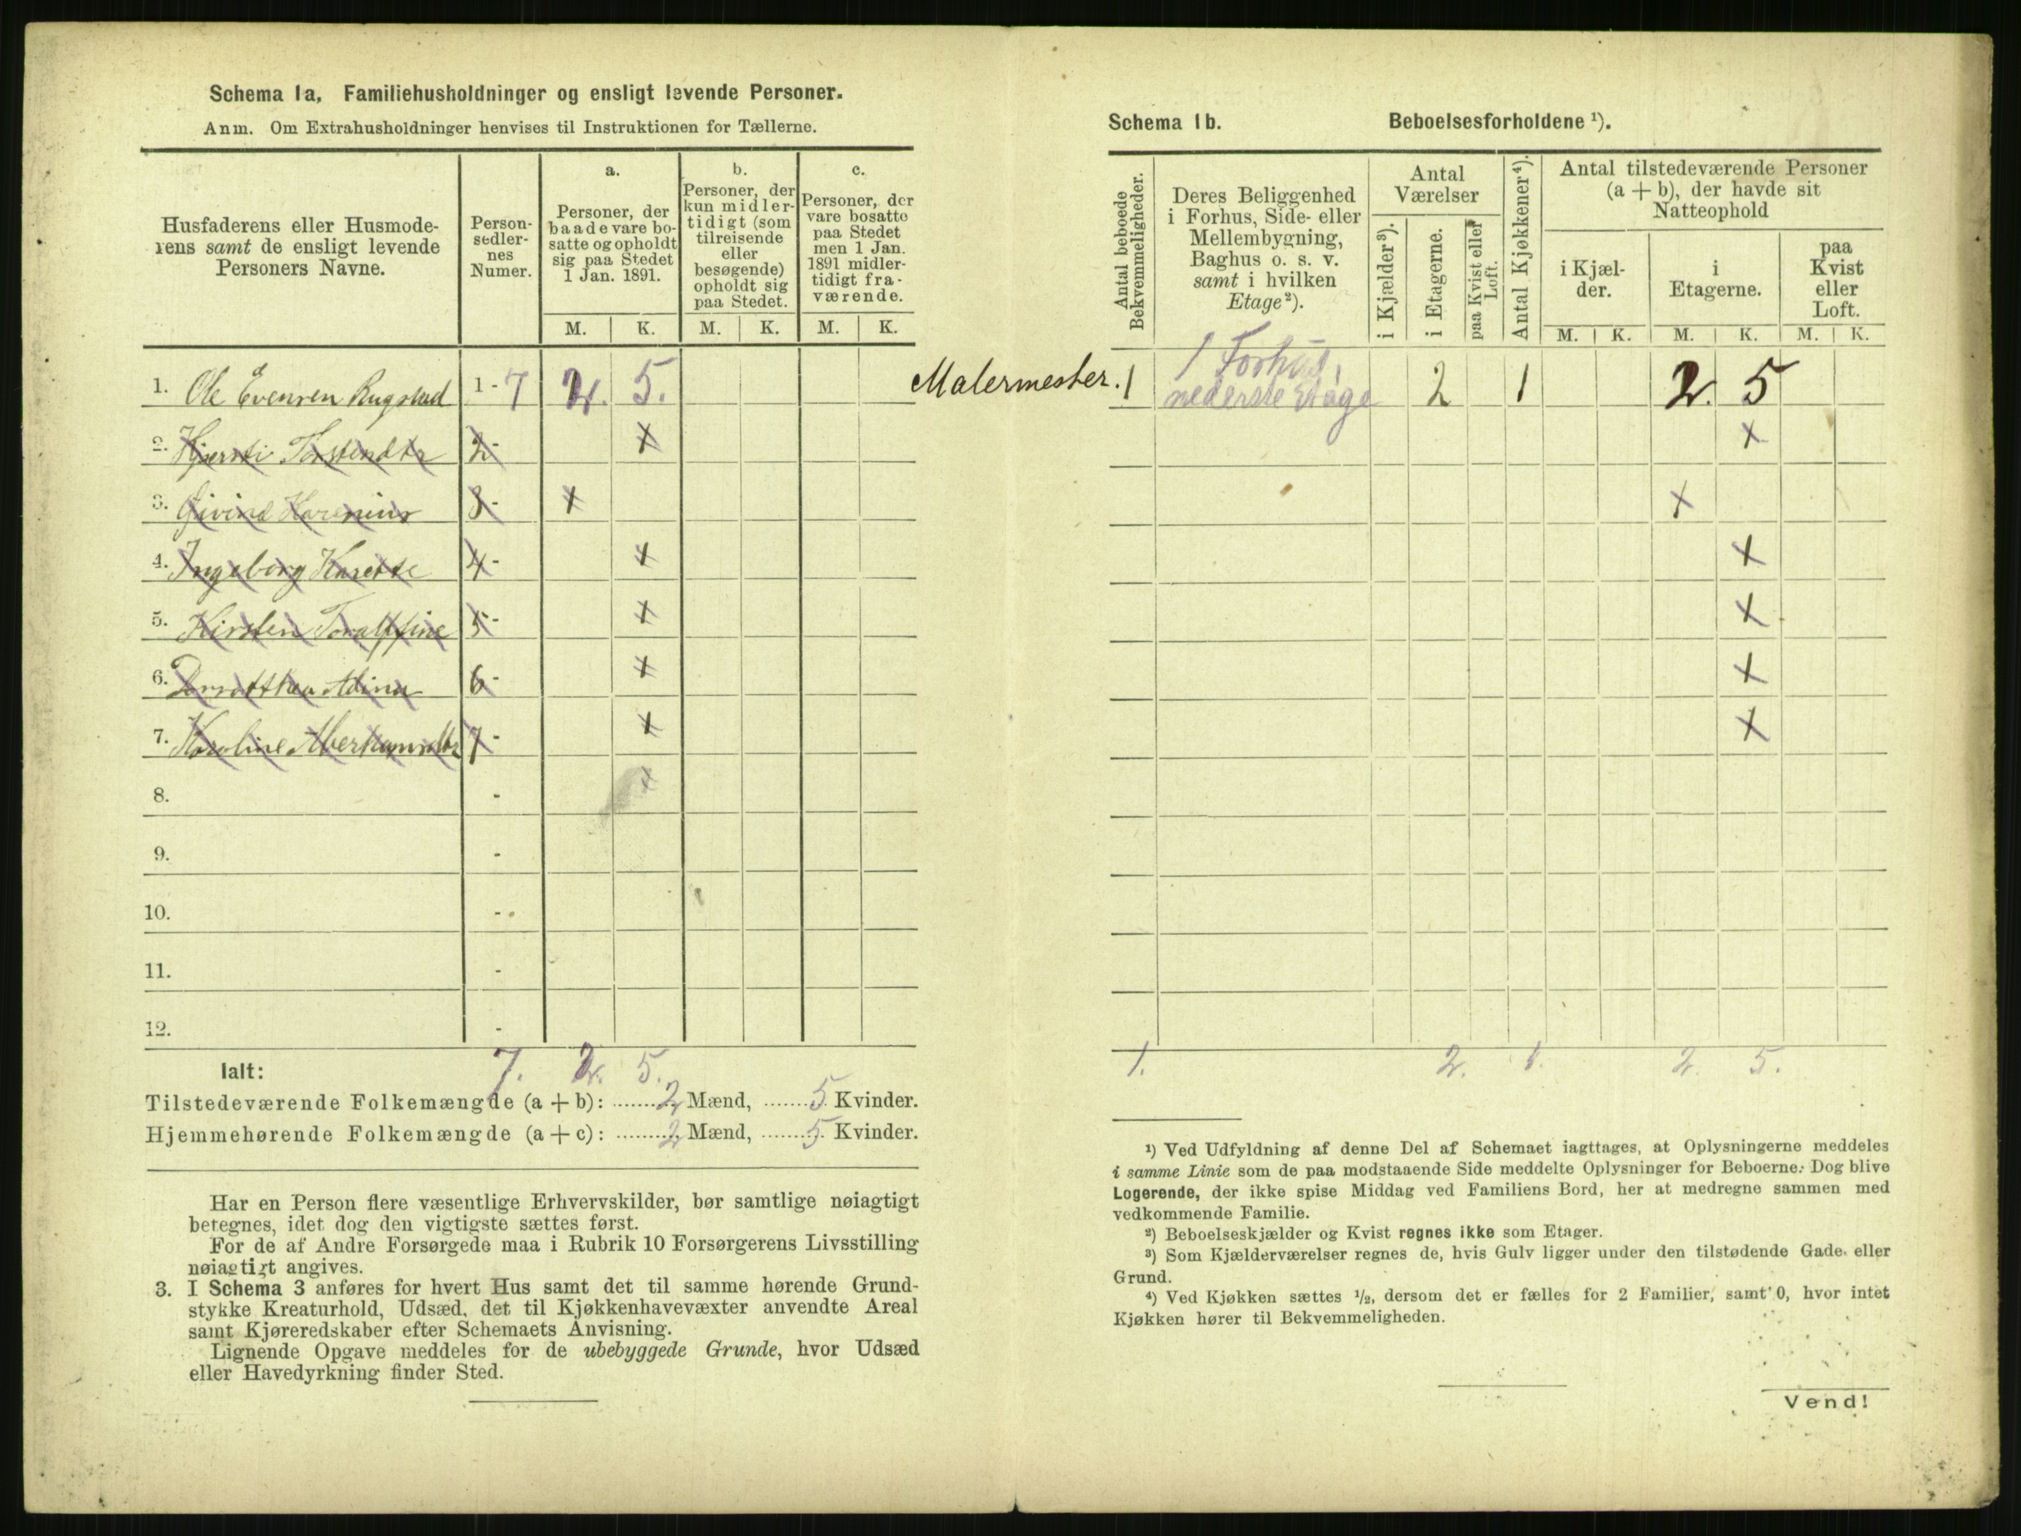 Schema 1a. Familiehusholdninger og ensligt levende Personer.
Anm. Om Extrahusholdninger henvises til Instruktionen for Tællerne.
Husfaderens eller Husmode-
rens samt de ensligt levende
Personers Navne.
Person-
sedler-
nes
Numer.
a.
Personer, der
baade vare bo-
satte og opholdt
sig paa Stedet
1 Jan. 1891.
b.
Personer, der
kun midler-
tidigt (som
tilreisende
eller
besøgende)
opholdt sig
paa Stedet.
c.
Personer, der
vare bosatte
paa Stedet
men 1 Jan.
1891 midler-
tidigt fra-
værende.
M. K. M. K. M. K.
1. Ole Evensen Rugslad 1-7 2. 5.
2. Kjersti Torstendtr 2- x
3. Øivind Harenius 3- x
4. Ingeborg Karette 4- x
5. Kirsten Toralffine 5- x
6. Dorotthea Adina 6- x
7. Karoline Aberhamsdtr 7- x
8. - x
9. -
10. -
11. -
12. -
Ialt: 7. 2. 5.
Tilstedeværende Folkemængde (a + b): 2 Mænd, 5 Kvinder.
Hjemmehørende Folkemængde (a + c): 2 Mænd, 5 Kvinder.
Har en Person flere væsentlige Erhvervskilder, bør samtlige nøiagtigt
betegnes, idet dog den vigtigste sættes først.
For de af Andre Forsørgede maa i Rubrik 10 Forsørgerens Livsstilling
nøiagtigt angives.
3. I Schema 3 anføres for hvert Hus samt det til samme hørende Grund-
stykke Kreaturhold, Udsæd, det til Kjøkkenhavevæxter anvendte Areal
samt Kjøreredskaber efter Schemaets Anvisning.
Lignende Opgave meddeles for de ubebyggede Grunde, hvor Udsæd
eller Havedyrkning finder Sted.
Schema 1b. Beboelsesforholdene ¹).
Antal beboede
Bekvemmeligheder.
Deres Beliggenhed
i Forhus, Side- eller
Mellembygning,
Baghus o. s. v.
samt i hvilken
Etage²).
Antal
Værelser
i Kjælder³).
i Etagerne.
paa Kvist eller
Loft.
Antal Kjøkkener⁴).
Antal tilstedeværende Personer
(a + b), der havde sit
Natteophold
i Kjæl-
der.
i
Etagerne.
paa
Kvist
eller
Loft.
M. K. M. K. M. K.
Malermester. 1 1 Forhus, 2 1 2. 5
nederste Etage
x
x
x
x
x
x
1. 2. 1. 2. 5.
¹) Ved Udfyldning af denne Del af Schemaet iagttages, at Oplysningerne meddeles
i samme Linie som de paa modstaaende Side meddelte Oplysninger for Beboerne. Dog blive
Logerende, der ikke spise Middag ved Familiens Bord, her at medregne sammen med
vedkommende Familie.
²) Beboelseskjælder og Kvist regnes ikke som Etager.
³) Som Kjælderværelser regnes de, hvis Gulv ligger under den tilstødende Gade eller
Grund.
⁴) Ved Kjøkken sættes ½, dersom det er fælles for 2 Familier, samt 0, hvor intet
Kjøkken hører til Bekvemmeligheden.
Vend!